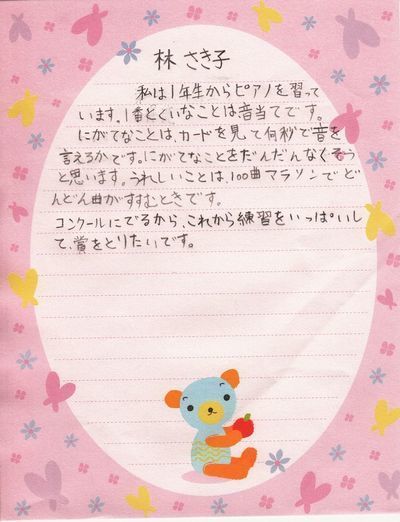 林 さき子
私は1年生からピアノを習って
います。1番とくいなことは音当てです。
にがてなことは、カードを見て何秒で音を
言えるかです。にがてなことをだんだんなくそう
と思います。うれしいことは、100曲マラソンでど
んどん曲がすすむときです。
コンクールにでるから、これから練習をいっぱいし
て、賞をとりたいです。